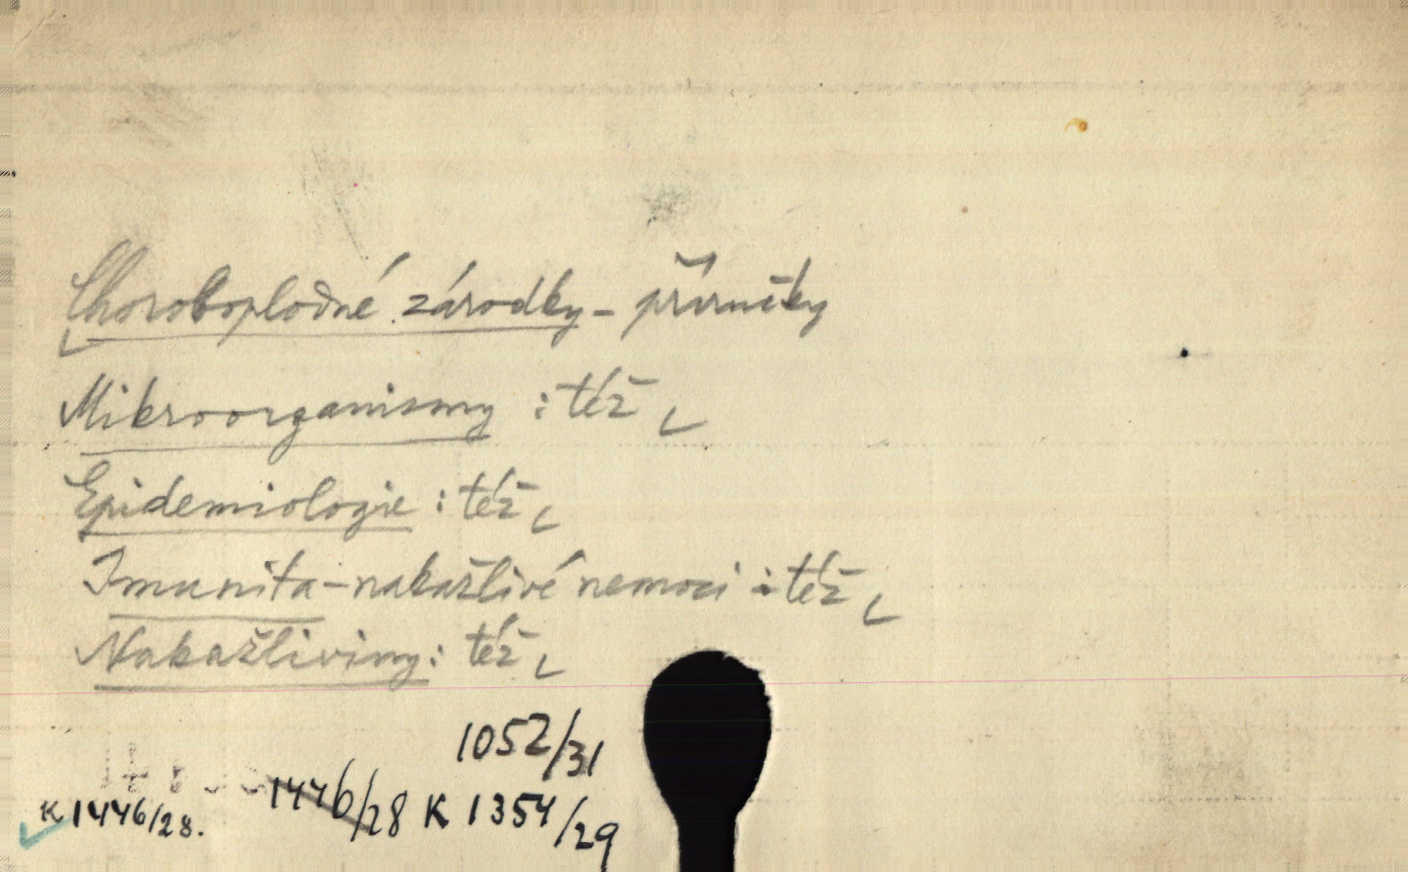 Choroboplodné zárodky - přírůčky
Mikroorganismy : též
Epidemiologie : též
Imunita - nakažlivé nemoci : též
Nakažliviny : též
1052/31
K 1446/28. 1446/28 K 1354/29